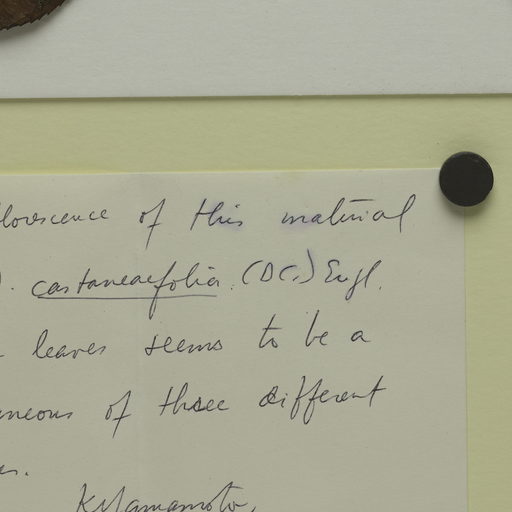 lorescence of this material
. castaneaefolia (DC.) Engl.
leaves seems to be a
neous of three different
K. Yamamoto,